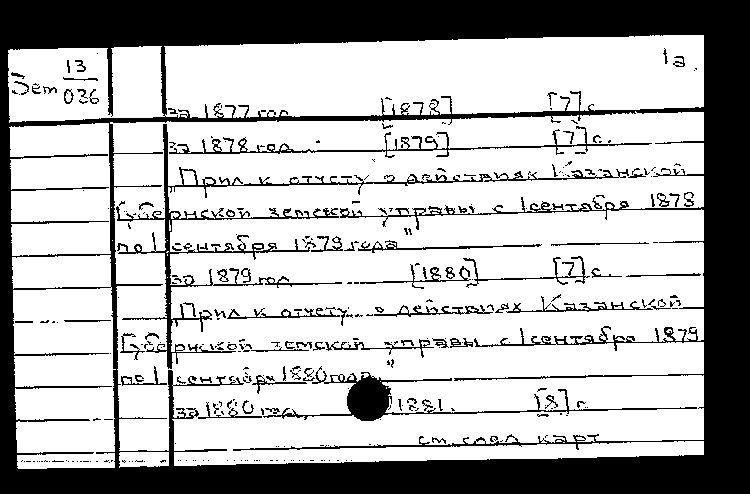 1а.
Зем 13/036
за 1877 год [1878] [7] с.
за 1878 год [1879] [7] с.
„Прил. к отчету о действиях Казанской
Губернской земской управы с 1 сентября 1878
по 1 сентября 1879 года"
за 1879 год [1880] [7] с.
„Прил. к отчету о действиях Казанской
Губернской земской управы с 1 сентября 1879
по 1 сентября 1880 года"
за 1880 год, 1881. [8] с.
см. след. карт.